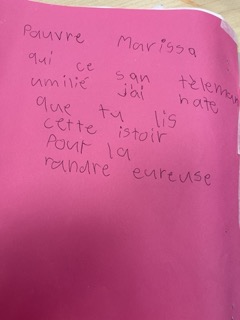 Pauvre Marissa
qui ce san tèlemen
umilié j'ai hate
que tu lis
cette istoir
Pour la
randre eureuse